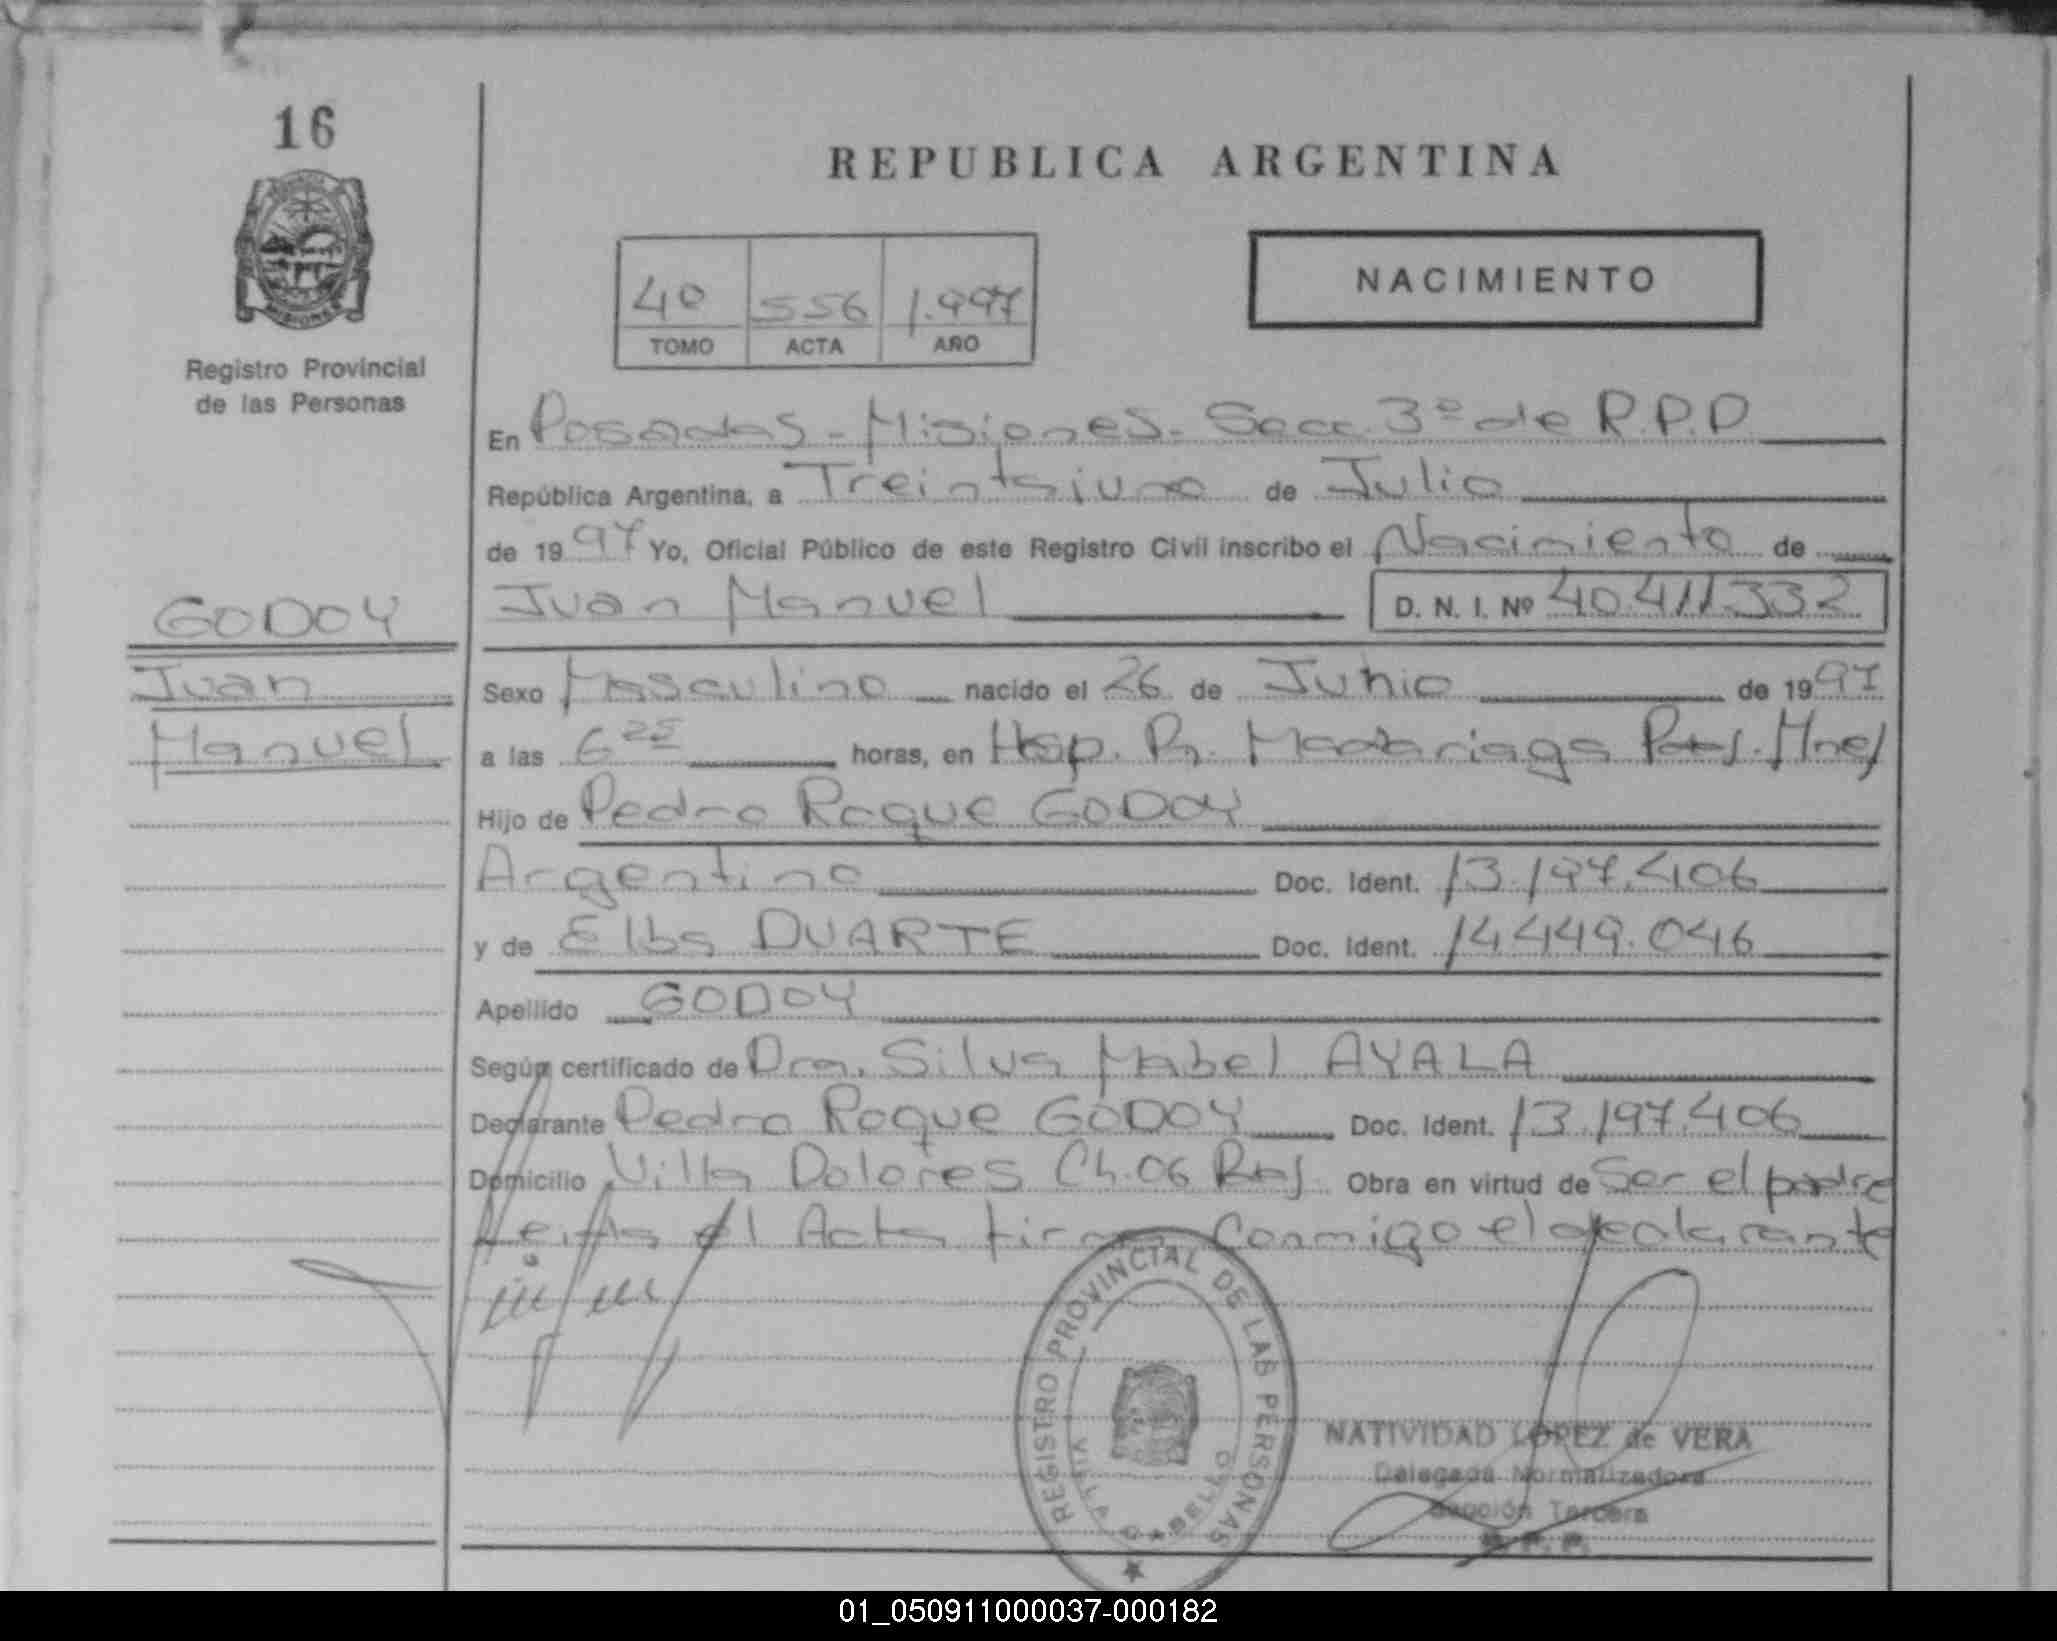 16
REPUBLICA ARGENTINA
NACIMIENTO
40 556 1.997
TOMO ACTA AÑO
Registro Provincial
de las Personas
En Posadas - Misiones - Secc. 3º de R.P.P
República Argentina, a Treintaiuno de Julio
de 1997 Yo, Oficial Público de este Registro Civil inscribo el Nacimiento de
Juan Manuel D. N. I. Nº 40.411.332
GODOY
Juan
Manuel
Sexo Masculino nacido el 26 de Junio de 1997
a las 6 25 horas, en Hosp. Dr. Madariaga Pos. Mnes
Hijo de Pedro Roque GODOY
Argentino Doc. Ident. 13.197.406
y de Elba DUARTE Doc. Ident. 14.449.046
Apellido GODOY
Según certificado de Dra. Silva Mabel AYALA
Declarante Pedro Roque GODOY Doc. Ident. 13.197.406
Domicilio Villa Dolores Ch.06 Obra en virtud de Ser el padre
Leida el Acta firma Conmigo el declarante
REGISTRO PROVINCIAL DE LAS PERSONAS
VILLA CABELLO
NATIVIDAD LOPEZ de VERA
Delegada Normalizadora
Sección Tercera
R.P.P.
01_050911000037-000182